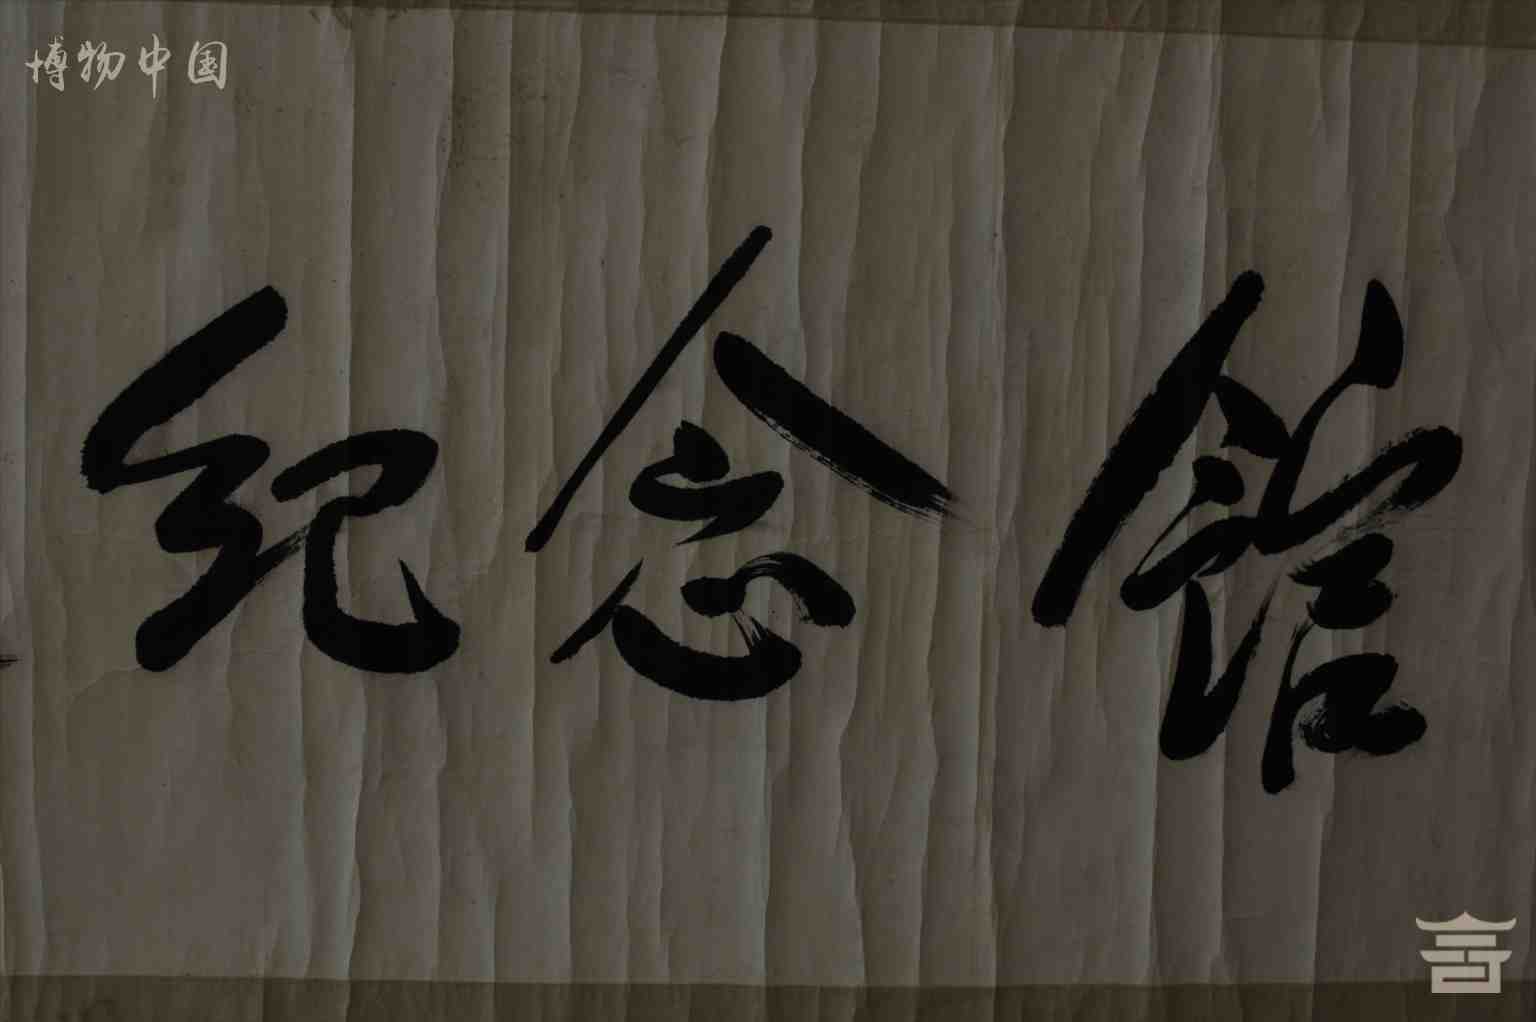 博物中国
纪念馆